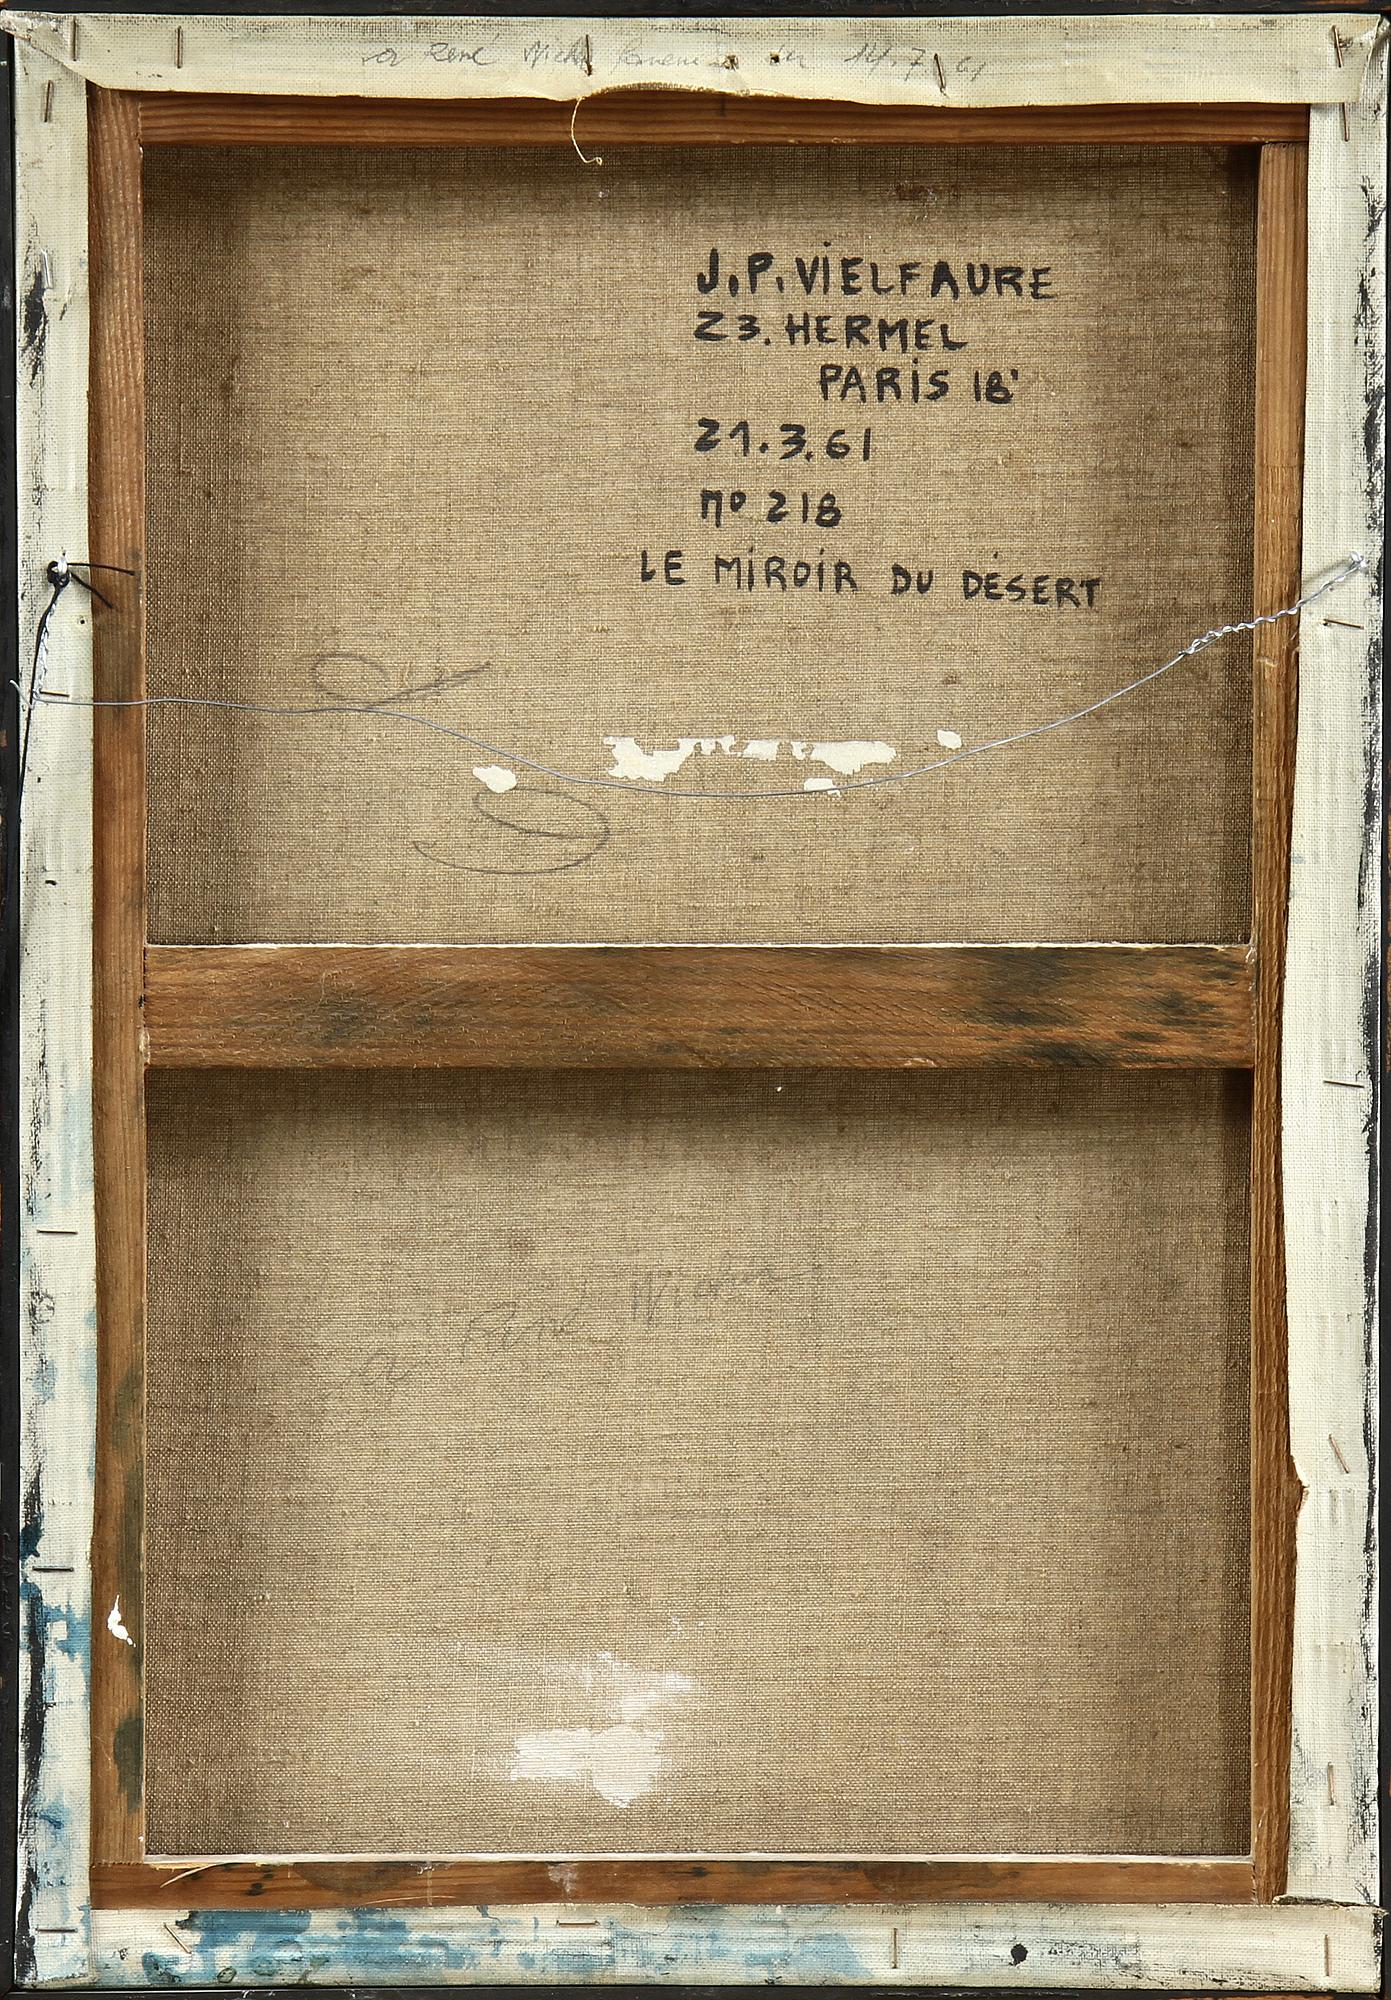 a René 14.7.61
J.P. VIELFAURE
23. HERMEL
PARIS 18'
21.3.61
no 218
LE MIROIR DU DÉSERT
a René